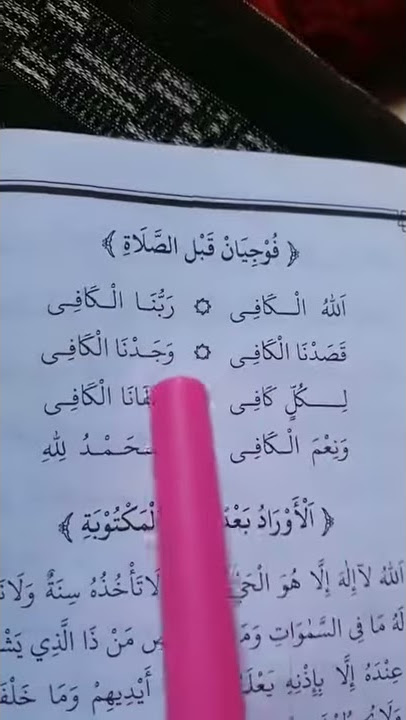 ﴿ فُوْجِيَانْ قَبْلَ الصَّلَاةِ ﴾
اَللهُ الْـكَافِى ۞ رَبُّنَا الْـكَافِى
قَصَدْنَا الْكَافِى ۞ وَجَدْنَا الْكَافِى
لِـكُلٍّ كَافِى الْكَافِى
وَنِعْمَ الْـكَافِى لِلّٰهِ
﴿ اَلْأَوْرَادُ الْمَكْتُوْبَةِ ﴾
اَللهُ لَآ إِلٰهَ إِلَّا هُوَ لَاتَأْخُذُهُ سِنَةٌ
لَهُ مَا فِى السَّمٰوَاتِ مَنْ ذَا الَّذِي
عِنْدَهُ إِلَّا بِإِذْنِهِ أَيْدِيهِمْ وَمَا